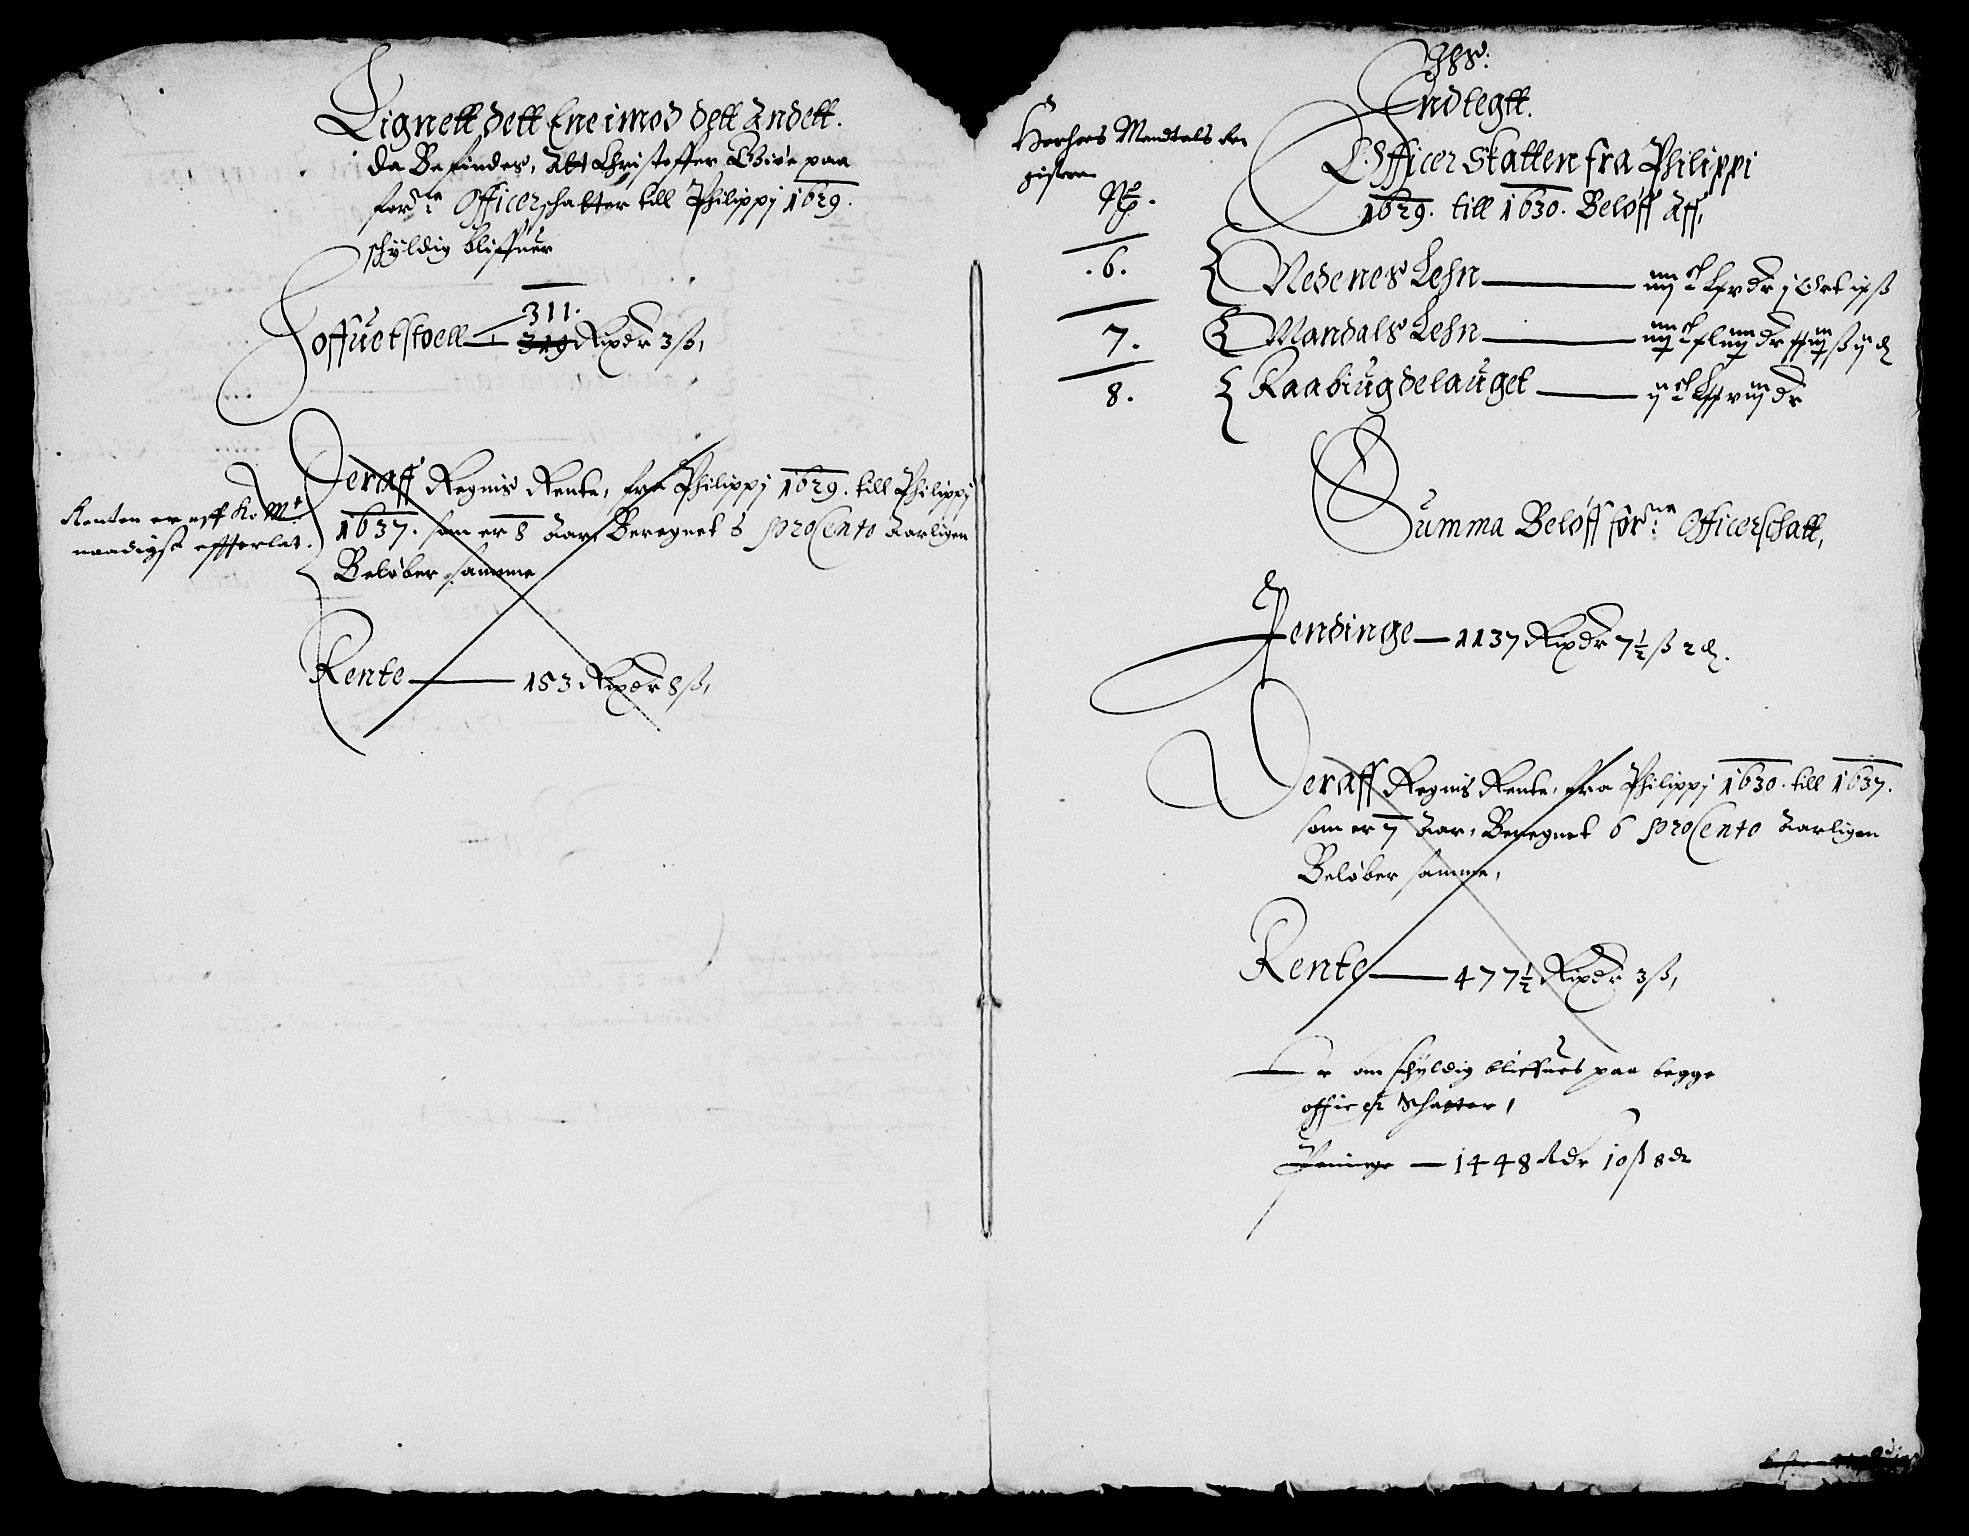 Lignett dett Ene imod dett Andett.
da Befindes, Att Christoffer Giøe paa
fordne Officerschatter till Philippj 1629.
schÿldig bliffuer
Hoffuetstoell — 311.
319 Rixdr 3 ß,
Deraff Regnis Rente, fra Philippj 1629. till Philippj
1637. som er 8 Aar, Beregnet 6 pro Cento Aarligen
Beløber samme
Renten er aff Ko Mt
naadigst effterlat.
Rente — 153 Rixdr 8 ß,
Indtegtt.
Officer Skatten fra Philippi
1629. till 1630. Beløff Aff,
Herhos Mandtals Re
gister
No.
.6. Nedenes Lehn
7. Mandals Lehn
8. Raabiugdelauget
Summa Beløff forne Officerschatt,
Pendinge — 1137 Rixdr 7½ ß 2 d.
Deraff Regnis Rente, fra Philippj 1630. till 1637.
som er 7 Aar, Beregnet 6 pro Cento Aarligen
Beløber samme,
Rente — 477½ Rixdr 3 ß,
schÿldig bliffues paa begge
officer Schatter,
Peninge — 1448 Rdr 10 ß 8 d